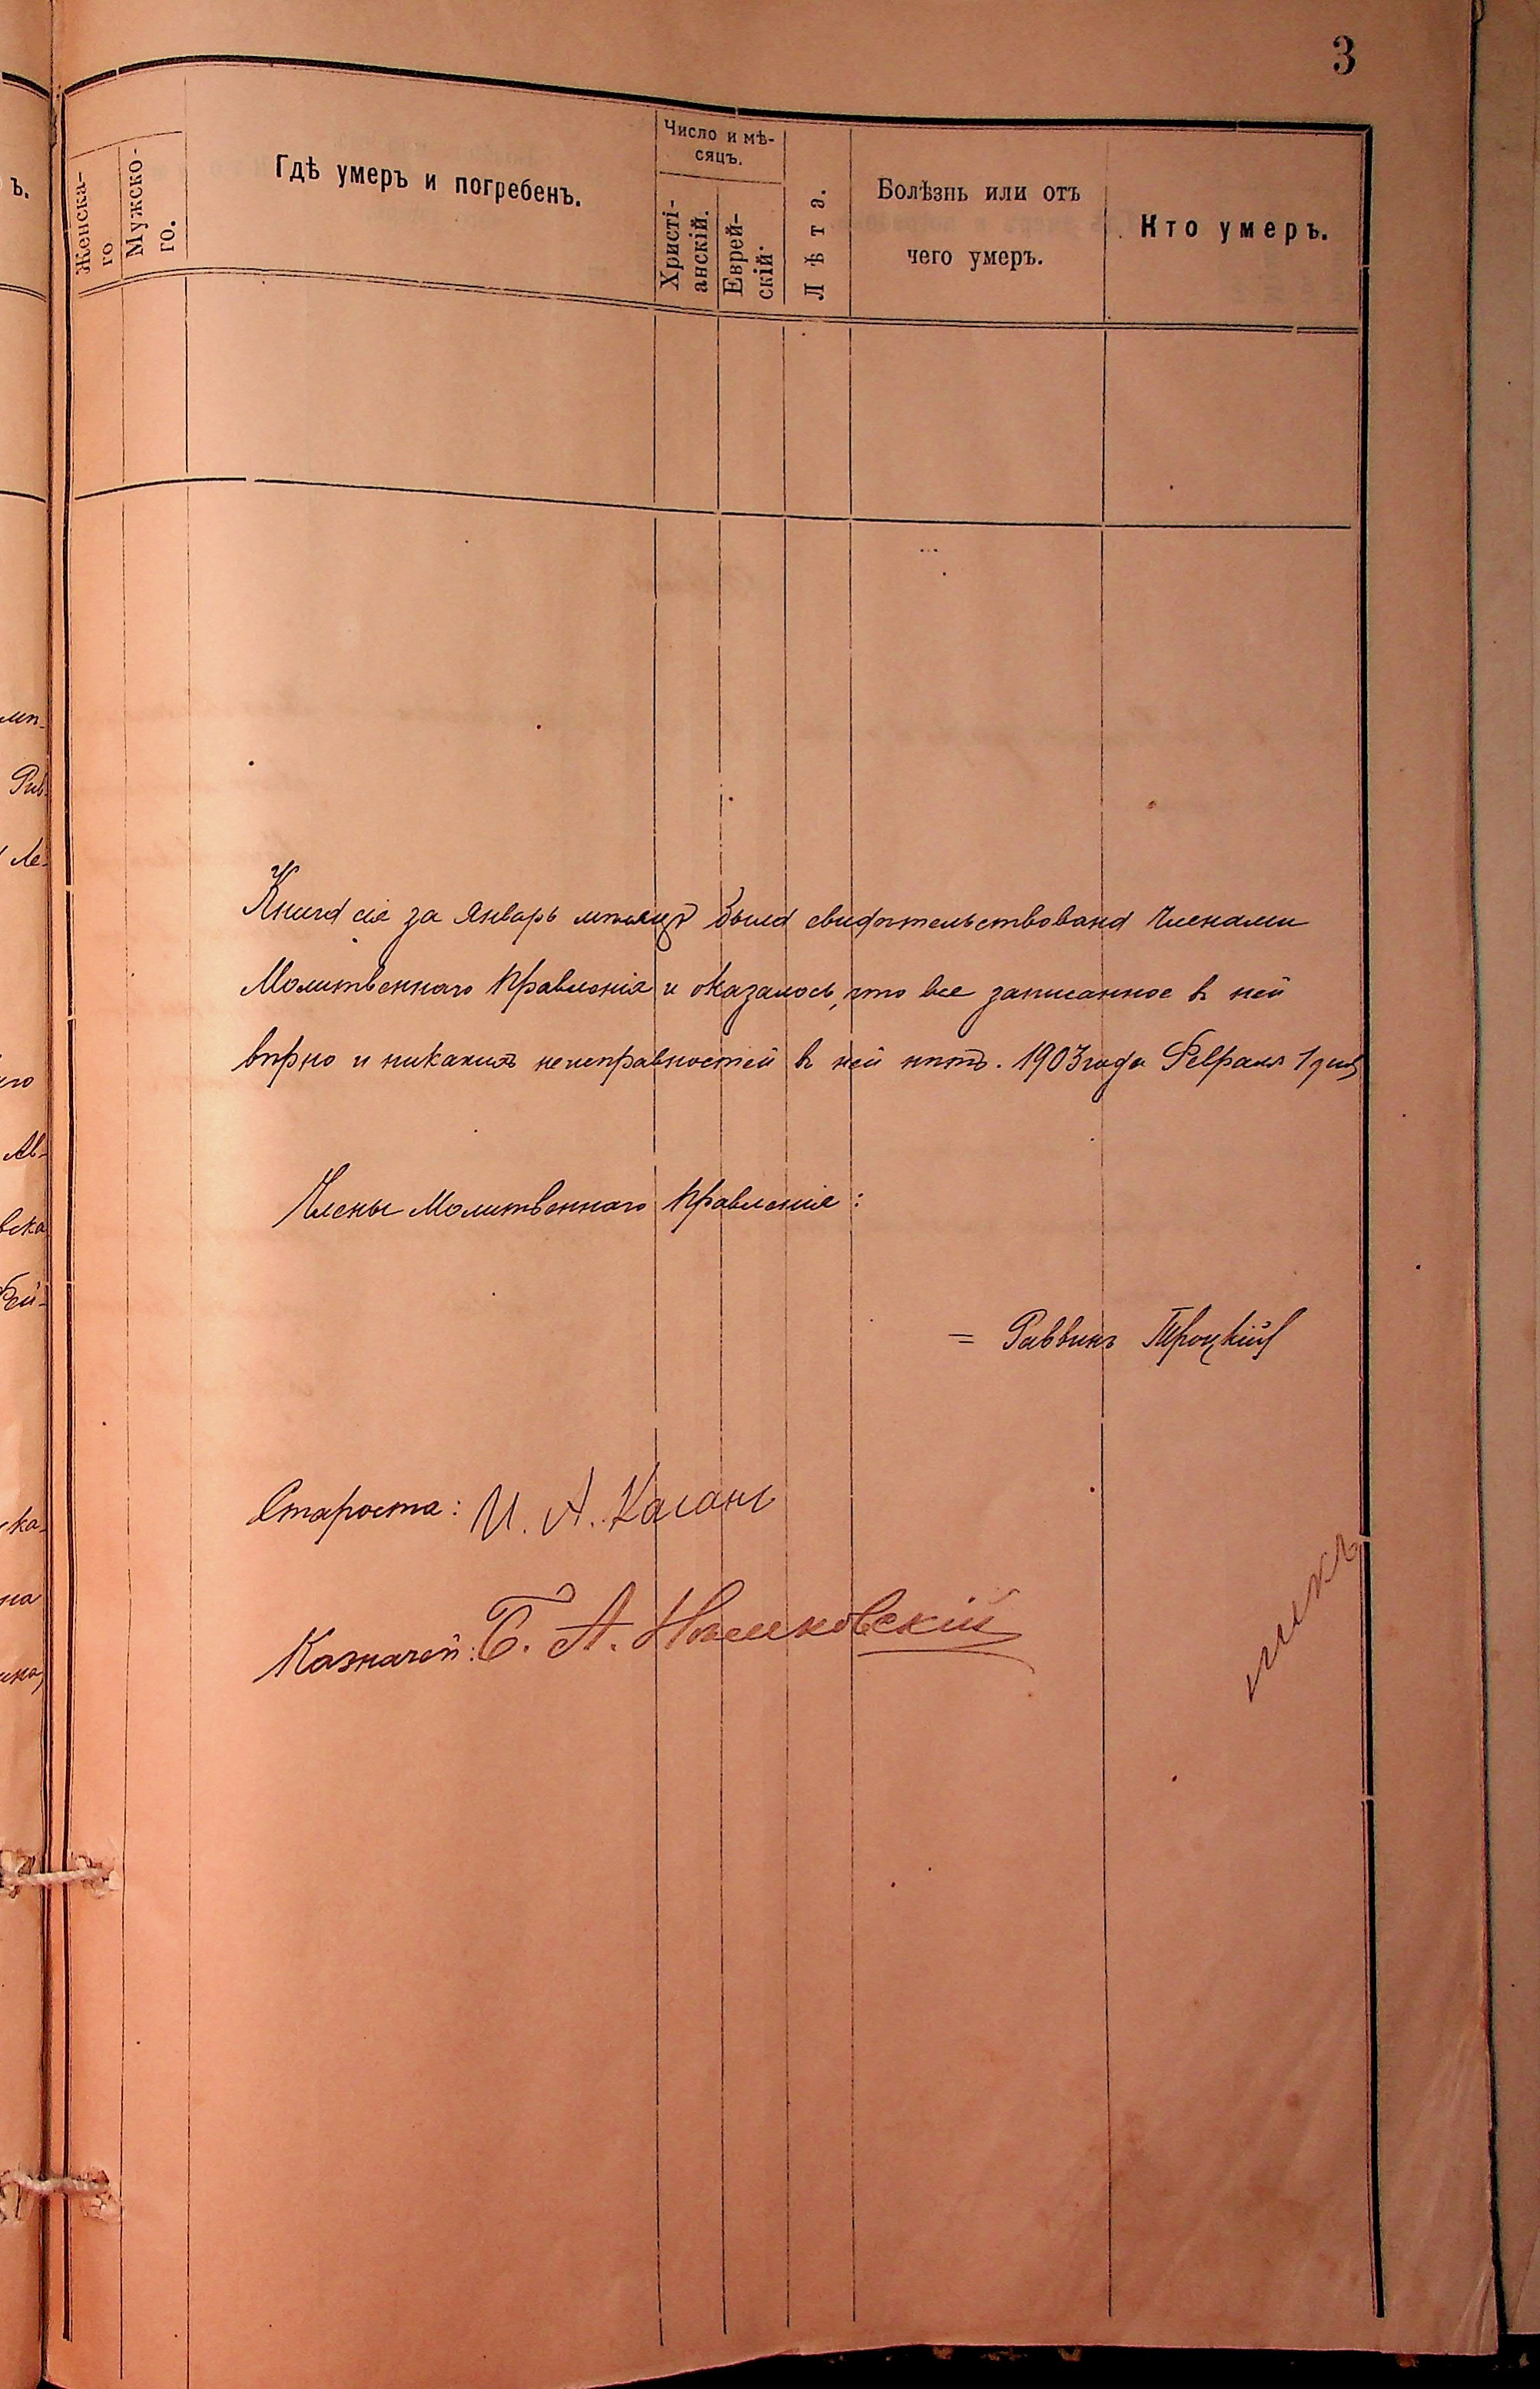 3
Женска-
го
Мужско-
го.
Гдѣ умеръ и погребенъ.
Число и мѣ-
сяцъ.
Христі-
анскій.
Еврей-
скій.
Лѣта.
Болѣзнь или отъ
чего умеръ.
Кто умеръ.
Книга сія за Январь мѣсяцъ была свидѣтельствована Членами
Молитвеннаго Правленія и оказалось, что все записанное въ ней
вѣрно и никакихъ неисправностей въ ней нѣтъ. 1903 года Февраля 1 дня
Члены Молитвеннаго Правленія:
= Раввинъ Троцкій
Староста: И. А. Каганъ
Казначей: Б. А.